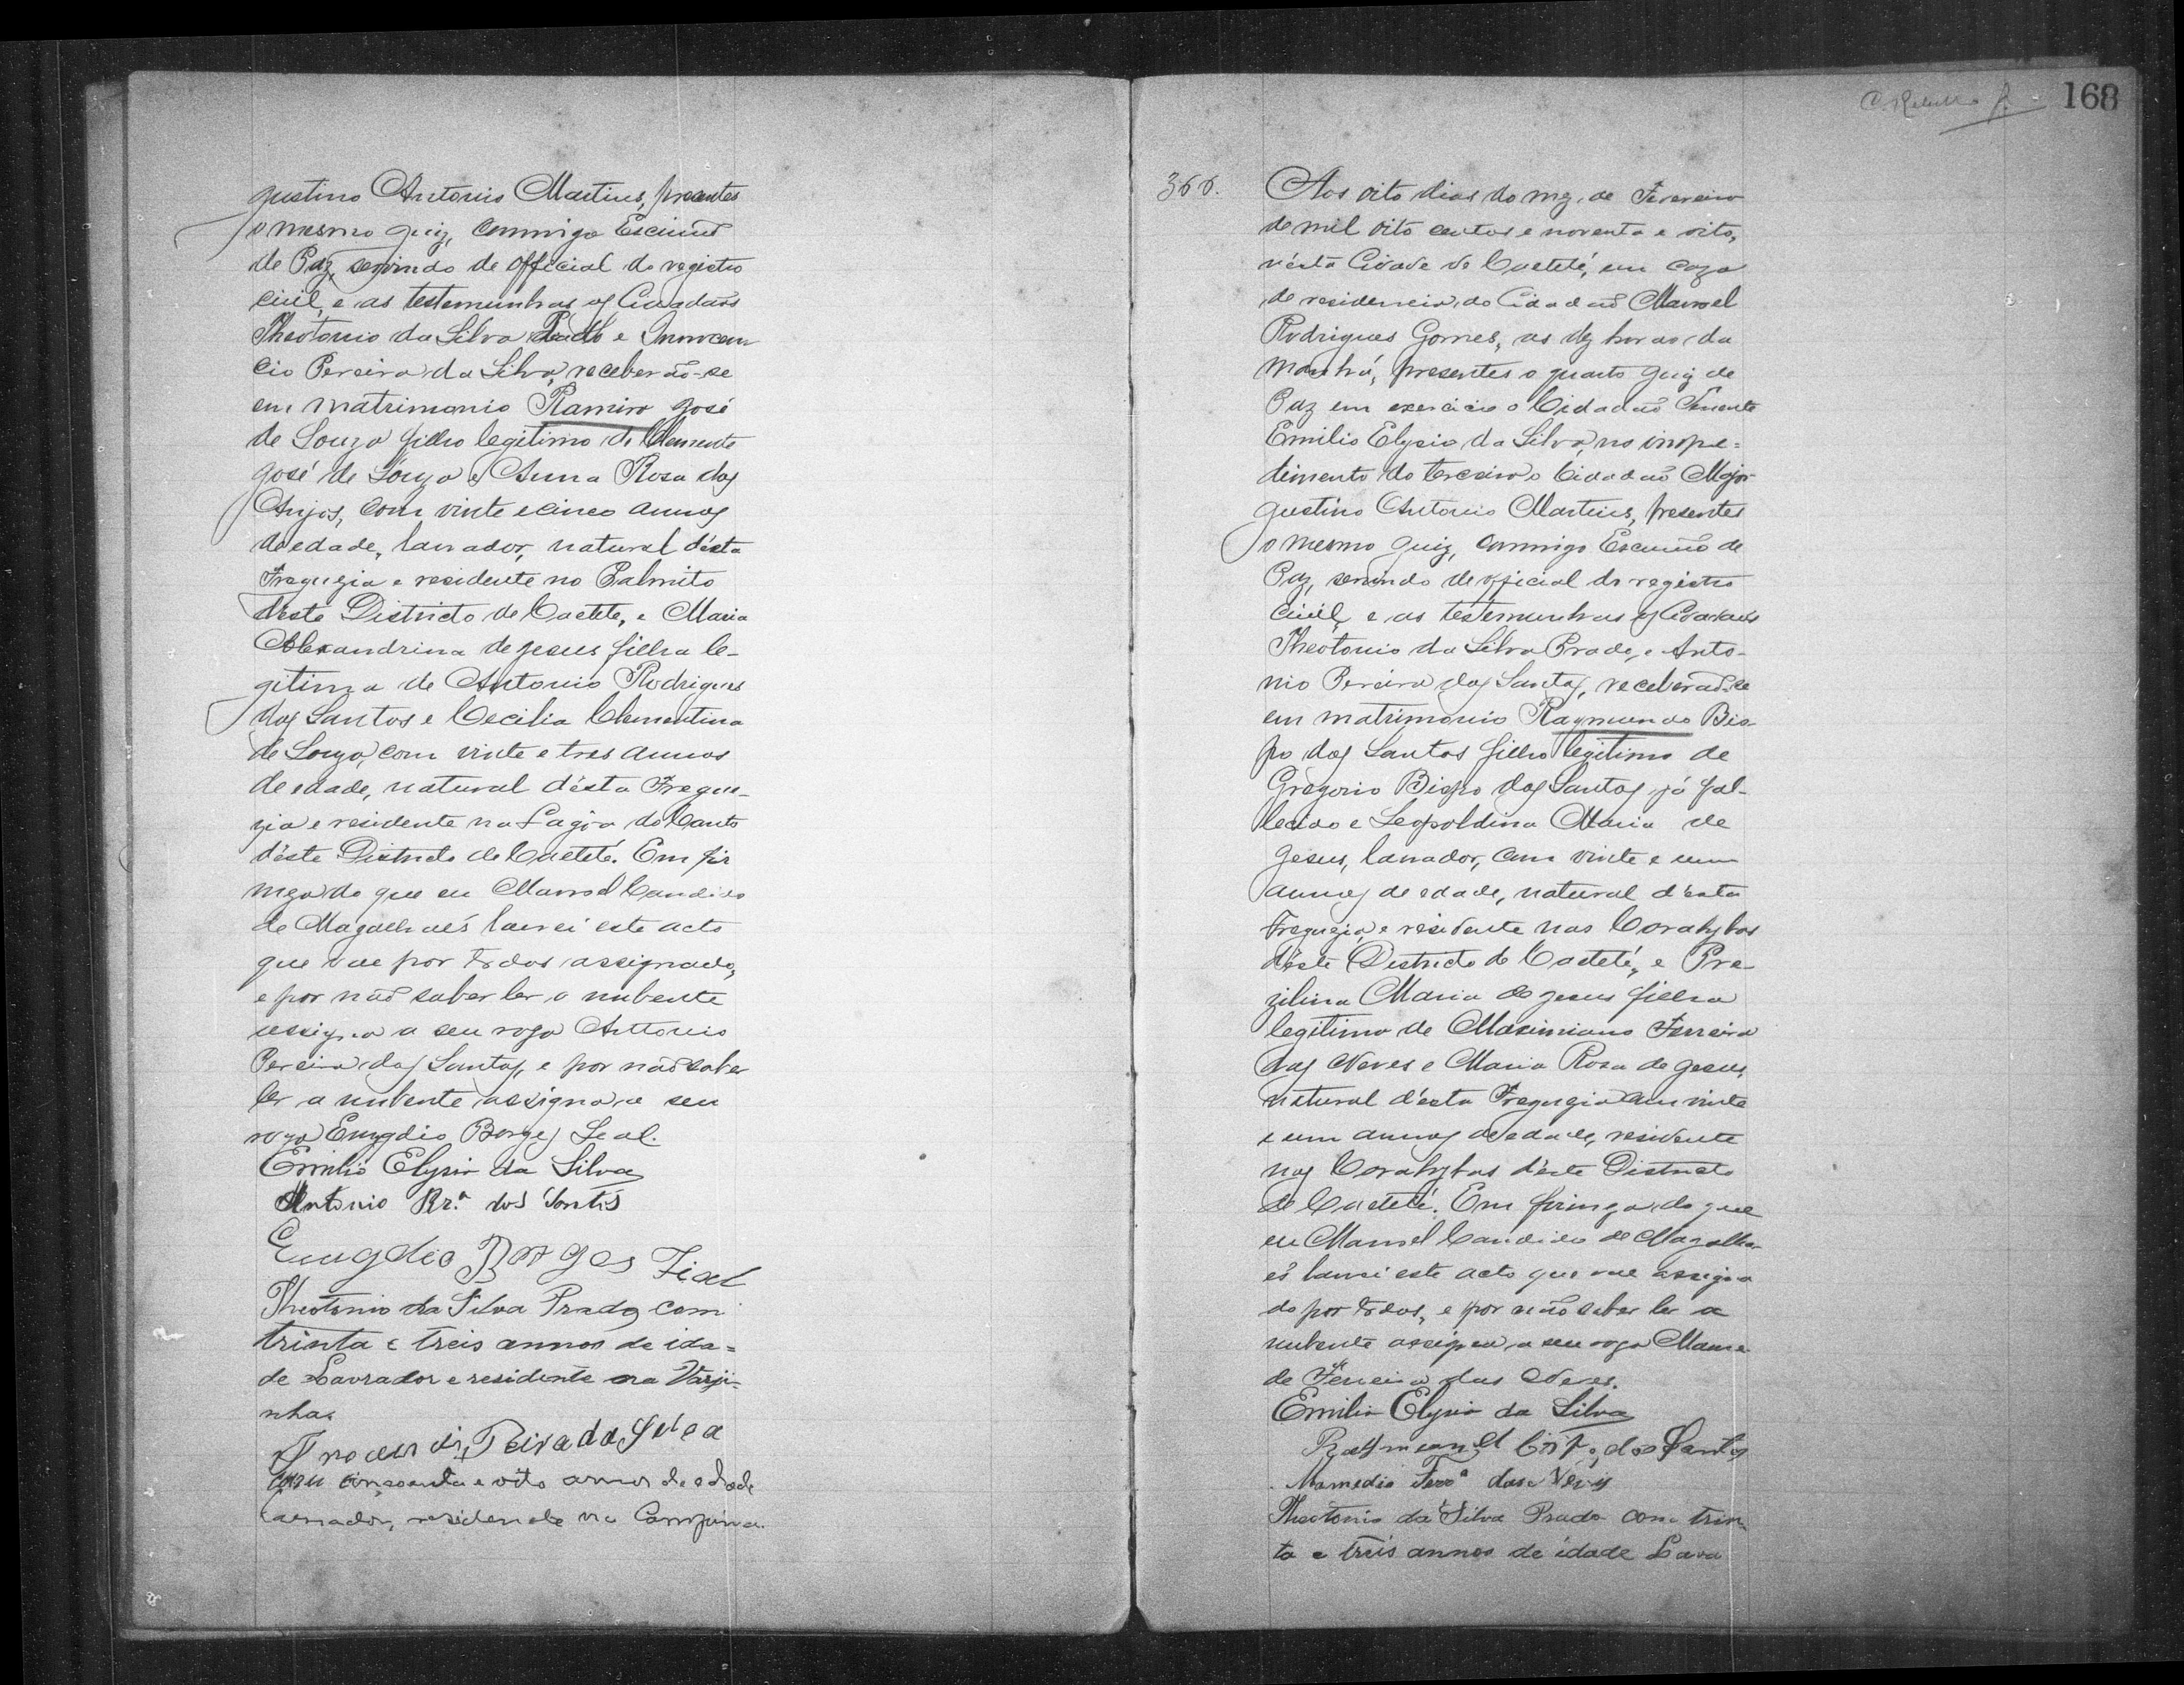 Justino Antonio Martins, presentes
o mesmo Juiz, commigo Escrivão
de Paz, servindo de official do registro
civil, e as testemunhas os Cidadãos
Theotonio da Silva Prado e Innocen
cio Pereira da Silva, receberão-se
em matrimonio Ramiro José
de Souza filho legitimo de Clemente
José de Souza e Anna Rosa dos
Anjos, com vinte e cinco annos
de edade, lavrador, natural d'esta
Freguezia e residente no Palmito
d'este Districto de Caeteté, e Maria
Alexandrina de Jesus filha le-
gitima de Antonio Rodrigues
dos Santos e Cecilia Clementina
de Souza, com vinte e tres annos
de edade, natural d'esta Fregue-
zia e residente na Lagôa do Canto
d'este Districto de Caeteté. Em fir
meza do que eu Manoel Candido
de Magalhães lavrei este acto
que vae por todos assignado,
e por não saber ler o nubente
assigna a seu rogo Antonio
Pereira dos Santos, e por não saber
ler a nubente assigna a seu
rogo Emygdio Borges Leal.
Emilio Elysio da Silva
Antonio Pr.ª dos Santos
Emygdio Borges Lial
Theotonio da Silva Prado com
trinta e treis annos de ida=
de Lavrador e residente na Varji-
nha.
Pereira da Silva
com cincoenta e oito annos de edade
lavrador, residente na Campina.
C. Rebello
168
366.
Aos oito dias do mez de Fevereiro
de mil oito centos e noventa e oito,
n'esta Cidade de Caeteté, em caza
de residencia do Cidadão Manoel
Rodrigues Gomes, as dez horas da
manhã, presentes o quarto Juiz de
Paz em exercicio o Cidadão Tenente
Emilio Elysio da Silva, no impe=
dimento do terceiro o Cidadão Major
Justino Antonio Martins, presentes
o mesmo Juiz, commigo Escrivão de
Paz, servindo de official do registro
Civil, e as testemunhas os Cidadãos
Theotonio da Silva Prado, e Anto-
nio Pereira dos Santos, receberão-se
em matrimonio Raymundo Bis-
po dos Santos filho legitimo de
Gregorio Bispo dos Santos já fal-
lecido e Leopoldina Maria de
Jesus, lavrador, com vinte e um
annos de edade, natural d'esta
Freguezia e residente nas Corahybas
d'este Districto de Caeteté, e Pra-
zilina Maria de Jesus filha
legitima de Maximiano Ferreira
das Neves e Maria Rosa de Jesus,
natural d'esta Freguezia com vinte
e um annos de edade, residente
nas Corahybas d'este Districto
de Caeteté. Em firmeza do que
eu Manoel Candido de Magalha-
es lavrei este acto que vae assigna
do por todos, e por não saber ler a
nubente assigna a seu rogo Mame
de Ferreira das Neves.
Emilio Elysio da Silva
Raymundo Bispo dos Santos
Mamedio Ferr.ª das Neves
Theotonio da Silva Prado com trin
ta e treis annos de idade Lavra